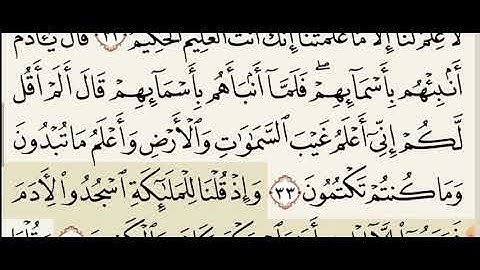 لَا عِلۡمَ لَنَآ إِلَّا مَا عَلَّمۡتَنَآ إِنَّكَ أَنتَ ٱلۡعَلِيمُ ٱلۡحَكِيمُ ٣٢ قَالَ يَٰٓـَٔادَمُ
أَنۢبِئۡهُم بِأَسۡمَآئِهِمۡۖ فَلَمَّآ أَنۢبَأَهُم بِأَسۡمَآئِهِمۡ قَالَ أَلَمۡ أَقُل
لَّكُمۡ إِنِّيٓ أَعۡلَمُ غَيۡبَ ٱلسَّمَٰوَٰتِ وَٱلۡأَرۡضِ وَأَعۡلَمُ مَا تُبۡدُونَ
وَمَا كُنتُمۡ تَكۡتُمُونَ ٣٣ وَإِذۡ قُلۡنَا لِلۡمَلَٰٓئِكَةِ ٱسۡجُدُواْ لِأٓدَمَ